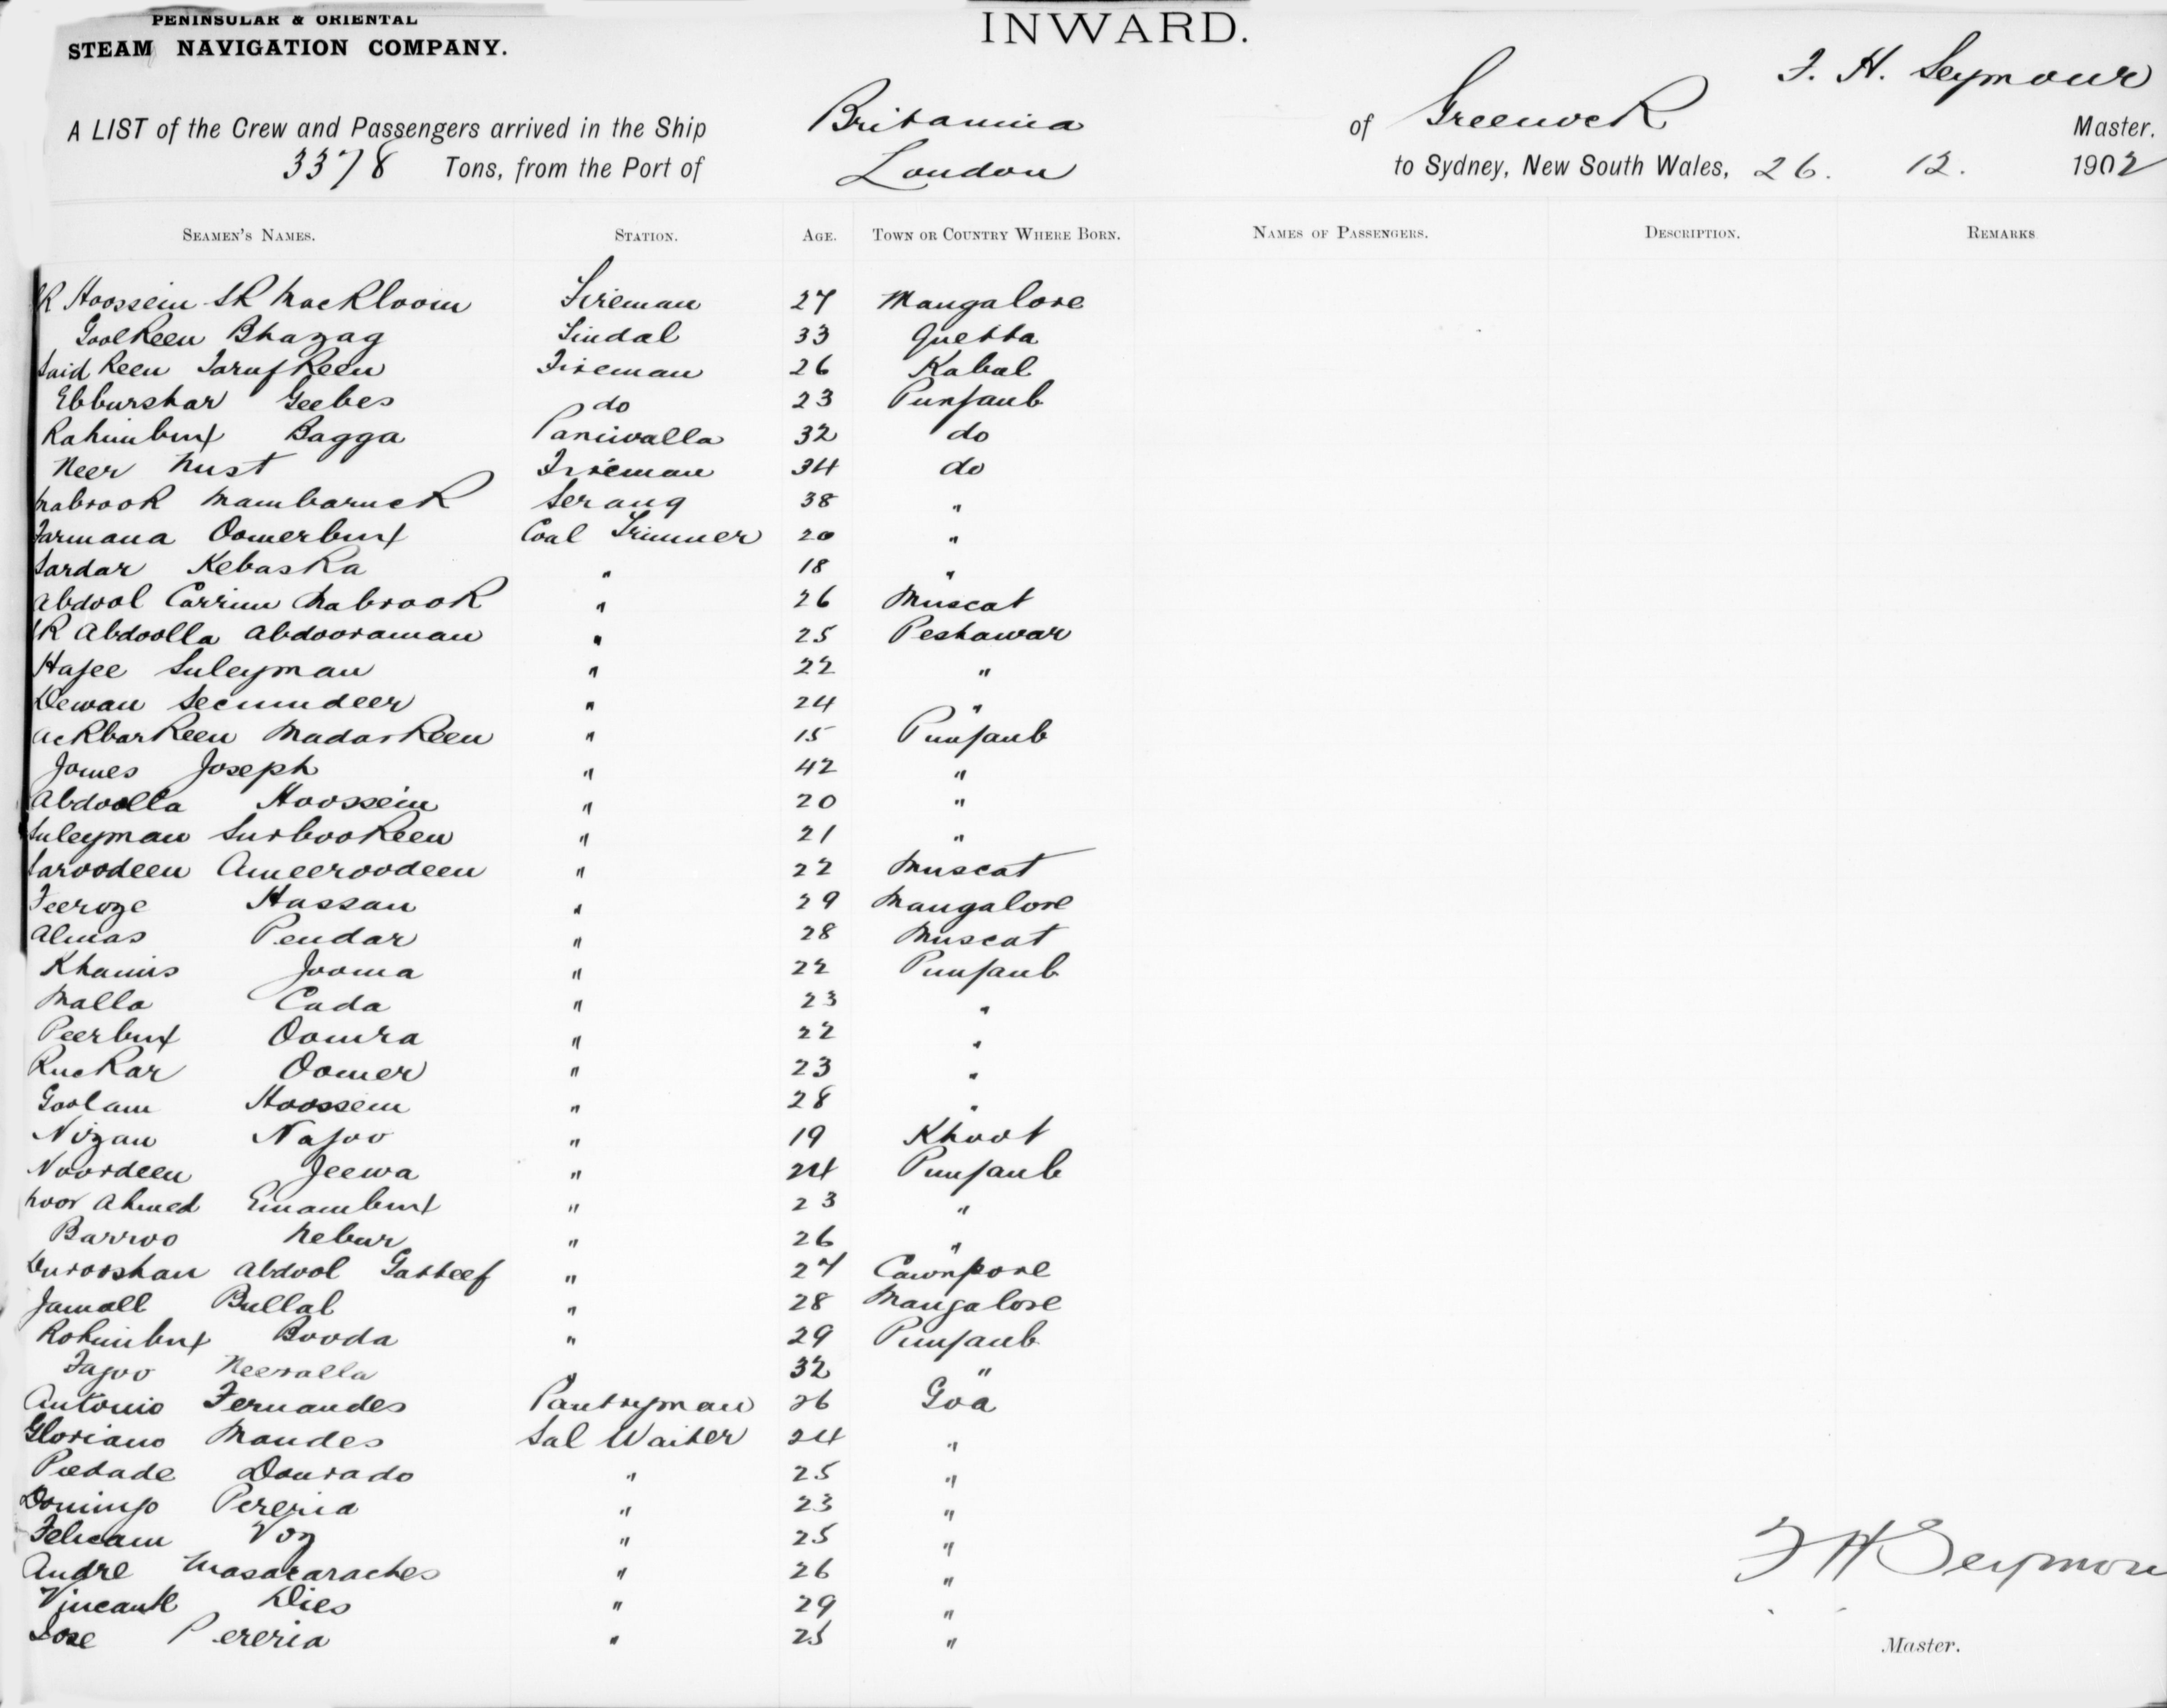 PENINSULAR & ORIENTAL
STEAM NAVIGATION COMPANY.
INWARD.
F. H. Seymour
A LIST of the Crew and Passengers arrived in the Ship Britannia of Greenock Master.
3378 Tons, from the Port of London to Sydney, New South Wales, 26. 12. 1902
SEAMEN'S NAMES. STATION. AGE. TOWN OR COUNTRY WHERE BORN. NAMES OF PASSENGERS. DESCRIPTION. REMARKS
Hoossein SK Mackloom Fireman 27 Mangalore
Goolkeen Bhazag Tindal 33 Quetta
Said Keen Tarufkeen Fireman 26 Kabal
Ebburshar Geebes do 23 Punjaub
Rahimbux Bagga Paniwalla 32 do
Neer Must Fireman 34 do
Mabrook Mambaruck Serang 38 "
Farmana Oomerbux Coal Trimmer 20 "
Sardar Kebaska " 18 "
Abdool Carrim Mabrook " 26 Muscat
SK Abdoolla Abdooraman " 25 Peshawar
Hajee Suleyman " 22 "
Dewan Secunndeer " 24 "
Ackbarkeen Madarkeen " 15 Punjaub
James Joseph " 42 "
Abdoolla Hoossein " 20 "
Suleyman Surbookeen " 21 "
Saroodeen Ameeroodeen " 22 Muscat
Feeroze Hassan " 29 Mangalore
Almas Pendar " 28 Muscat
Khamis Jooma " 22 Punjaub
Malla Cada " 23 "
Peerbux Oomra " 22 "
Ruckar Oomer " 23 "
Goolam Hoossein " 28 "
Nizan Najoo " 19 Khoot
Noordeen Jeewa " 24 Punjaub
Noor Ahmed Emambux " 23 "
Barroo Nebur " 26 "
Durooshan Abdool Gatteef " 27 Cawnpore
Jamall Bullal " 28 Mangalore
Rohimbux Booda " 29 Punjaub
Fajoo Neeralla " 32 "
Antonio Fernandes Pantryman 26 Goa
Gloriano Mandes Sal Waiter 24 "
Piedade Dourado " 25 "
Domingo Pereria " 23 "
Felicam Voz " 25 "
Andre Masacaraches " 26 "
Vincant Dies " 29 "
Jose Pereria " 25 "
F H Seymour
Master.